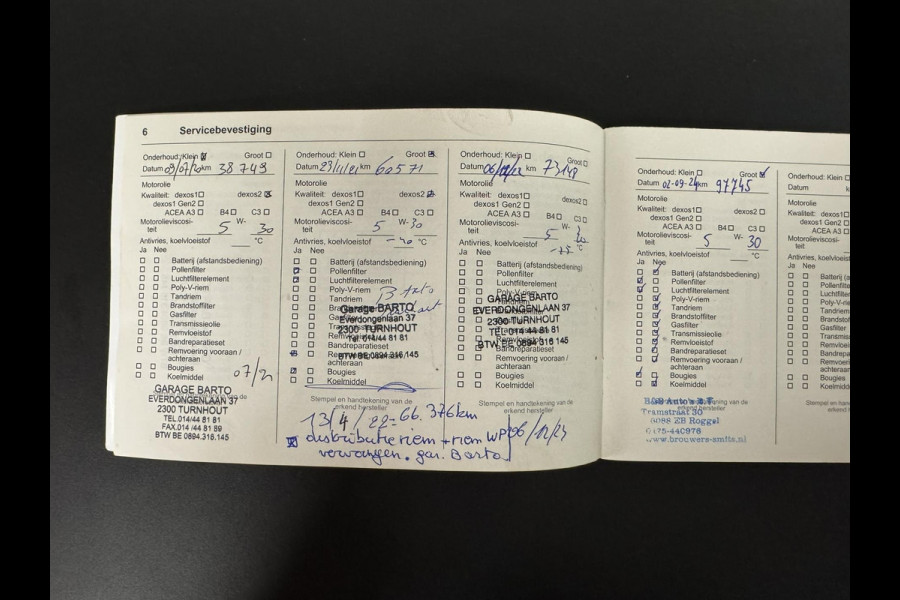 6 Servicebevestiging
Onderhoud: Klein Groot
Datum 09/07/20 km 38749
Motorolie
Kwaliteit: dexos1 dexos2
dexos1 Gen2
ACEA A3 B4 C3
Motorolieviscositeit 5 W- 30
Antivries, koelvloeistof °C
Ja Nee
Batterij (afstandsbediening)
Pollenfilter
Luchtfilterelement
Poly-V-riem
Tandriem
Brandstoffilter
Gasfilter
Transmissieolie
Remvloeistof
Bandreparatieset
Remvoering vooraan /
achteraan
Bougies
Koelmiddel
07/21
GARAGE BARTO
EVERDONGENLAAN 37
2300 TURNHOUT
TEL.014/44 81 81
FAX.014 44 81 89
BTW BE 0894.316.145
Onderhoud: Klein Groot
Datum 29/11/21 km 60571
Motorolie
Kwaliteit: dexos1 dexos2
dexos1 Gen2
ACEA A3 B4 C3
Motorolieviscositeit 5 W- 30
Antivries, koelvloeistof -40 °C
Ja Nee
Batterij (afstandsbediening)
Pollenfilter
Luchtfilterelement
Poly-V-riem
Tandriem
Garage BARTO
Everdongenlaan 37
2300 TURNHOUT
Tel. 014/44 81 81
BTW BE 0894.316.145
achteraan
Bougies
Koelmiddel
Stempel en handtekening van de
erkend hersteller
13/4/22= 66.376km
distributie riem + riem WP
vervangen. gar. Barto
Onderhoud: Klein Groot
Datum 06/12/22 km 73148
Motorolie
Kwaliteit: dexos1 dexos2
dexos1 Gen2
ACEA A3 B4 C3
Motorolieviscositeit 5 W- 30
Antivries, koelvloeistof °C
Ja Nee
Batterij (afstandsbediening)
Pollenfilter
Luchtfilterelement
Poly-V-riem
GARAGE BARTO
EVERDONGENLAAN 37
2300 TURNHOUT
TEL. 014/44 81 81
BTW BE 0894 316 145
Bandreparatieset
Remvoering vooraan /
achteraan
Bougies
Koelmiddel
Stempel en handtekening van de
erkend hersteller
Onderhoud: Klein Groot
Datum 02-09-24 km 97745
Motorolie
Kwaliteit: dexos1 dexos2
dexos1 Gen2
ACEA A3 B4 C3
Motorolieviscositeit 5 W- 30
Antivries, koelvloeistof °C
Ja Nee
Batterij (afstandsbediening)
Pollenfilter
Luchtfilterelement
Poly-V-riem
Tandriem
Brandstoffilter
Gasfilter
Transmissieolie
Remvloeistof
Bandreparatieset
Remvoering vooraan /
achteraan
Bougies
Koelmiddel
Tramstraat 30
6088 EB Roggel
0475-440976
www.brouwers-smits.nl
Onderhoud: Klein
Datum
Motorolie
Kwaliteit: dexos1
dexos1 Gen2
ACEA A3
Motorolieviscositeit
Antivries, koelvloeistof
Ja Nee
Batterij
Pollenfilter
Luchtfilterelement
Poly-V-riem
Tandriem
Gasfilter
Transmissieolie
Remvloeistof
achteraan
Bougies
Koelmiddel